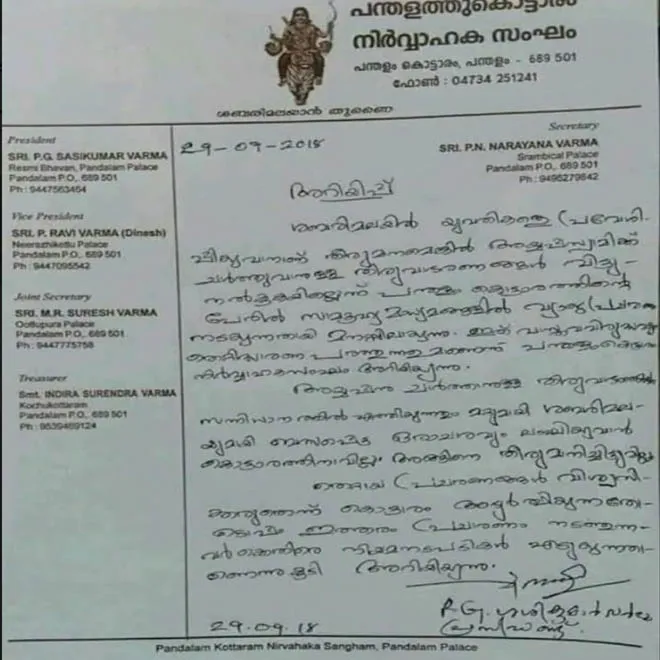 പന്തളത്തുകൊട്ടാരം
നിർവ്വാഹക സംഘം
പന്തളം കൊട്ടാരം, പന്തളം - 689 501
ഫോൺ : 04734 251241
ശബരിമലയാൻ തുണൈ
President
SRI. P.G. SASIKUMAR VARMA
Resmi Bhavan, Pandalam Palace
Pandalam P.O., 689 501
Ph : 9447563464
Vice President
SRI. P. RAVI VARMA (Dinesh)
Neerazhikettu Palace
Pandalam P.O., 689 501
Ph : 9447095542
Joint Secretary
SRI. M.R. SURESH VARMA
Oottupura Palace
Pandalam P.O., 689 501
Ph : 9447775758
Treasurer
Smt. INDIRA SURENDRA VARMA
Kochukottaram
Pandalam P.O., 689 501
Ph : 9539469124
Secretary
SRI. P.N. NARAYANA VARMA
Srambical Palace
Pandalam P.O., 689 501
Ph : 9496279842
29-09-2018
അറിയിപ്പ്
ശബരിമലയിൽ യുവതികളെ പ്രവേശി-
പ്പിക്കുവാനാണ് തീരുമാനമെങ്കിൽ അയ്യപ്പസ്വാമിക്ക്
ചാർത്തുവാനുള്ള തിരുവാഭരണങ്ങൾ വിട്ടു-
നൽകുകയില്ലെന്ന് പന്തളം കൊട്ടാരത്തിന്റെ
പേരിൽ സാമൂഹ്യ മാധ്യമങ്ങളിൽ വ്യാജ പ്രചരണം
നടക്കുന്നതായി മനസ്സിലാക്കുന്നു. ഇത്
തെറ്റിദ്ധാരണ പരത്തുന്നതുമാണെന്ന് പന്തളംകൊട്ടാരം
നിർവ്വാഹകസംഘം അറിയിക്കുന്നു.
അയ്യപ്പനു ചാർത്താനുള്ള
സന്നിധാനത്തിൽ എത്തിക്കുന്നതും മറ്റുമായി ശബരിമല-
യുമായി ബന്ധപ്പെട്ട ഒരാചാരവും ലംഘിക്കുവാൻ
കൊട്ടാരത്തിനാവില്ല. അങ്ങിനെ തീരുമാനിച്ചിട്ടുമില്ല.
തെറ്റായ പ്രചരണങ്ങൾ വിശ്വസി-
ക്കരുതെന്ന് കൊട്ടാരം അഭ്യർത്ഥിക്കുന്നതോ-
ടൊപ്പം ഇത്തരം പ്രചരണം നടത്തുന്ന-
വർക്കെതിരെ നിയമനടപടികൾ എടുക്കുന്നതാ-
ണെന്നുകൂടി അറിയിക്കുന്നു.
P.G. ശശികുമാർ വർമ്മ
29.09.18
പ്രസിഡണ്ട്.
Pandalam Kottaram Nirvahaka Sangham, Pandalam Palace